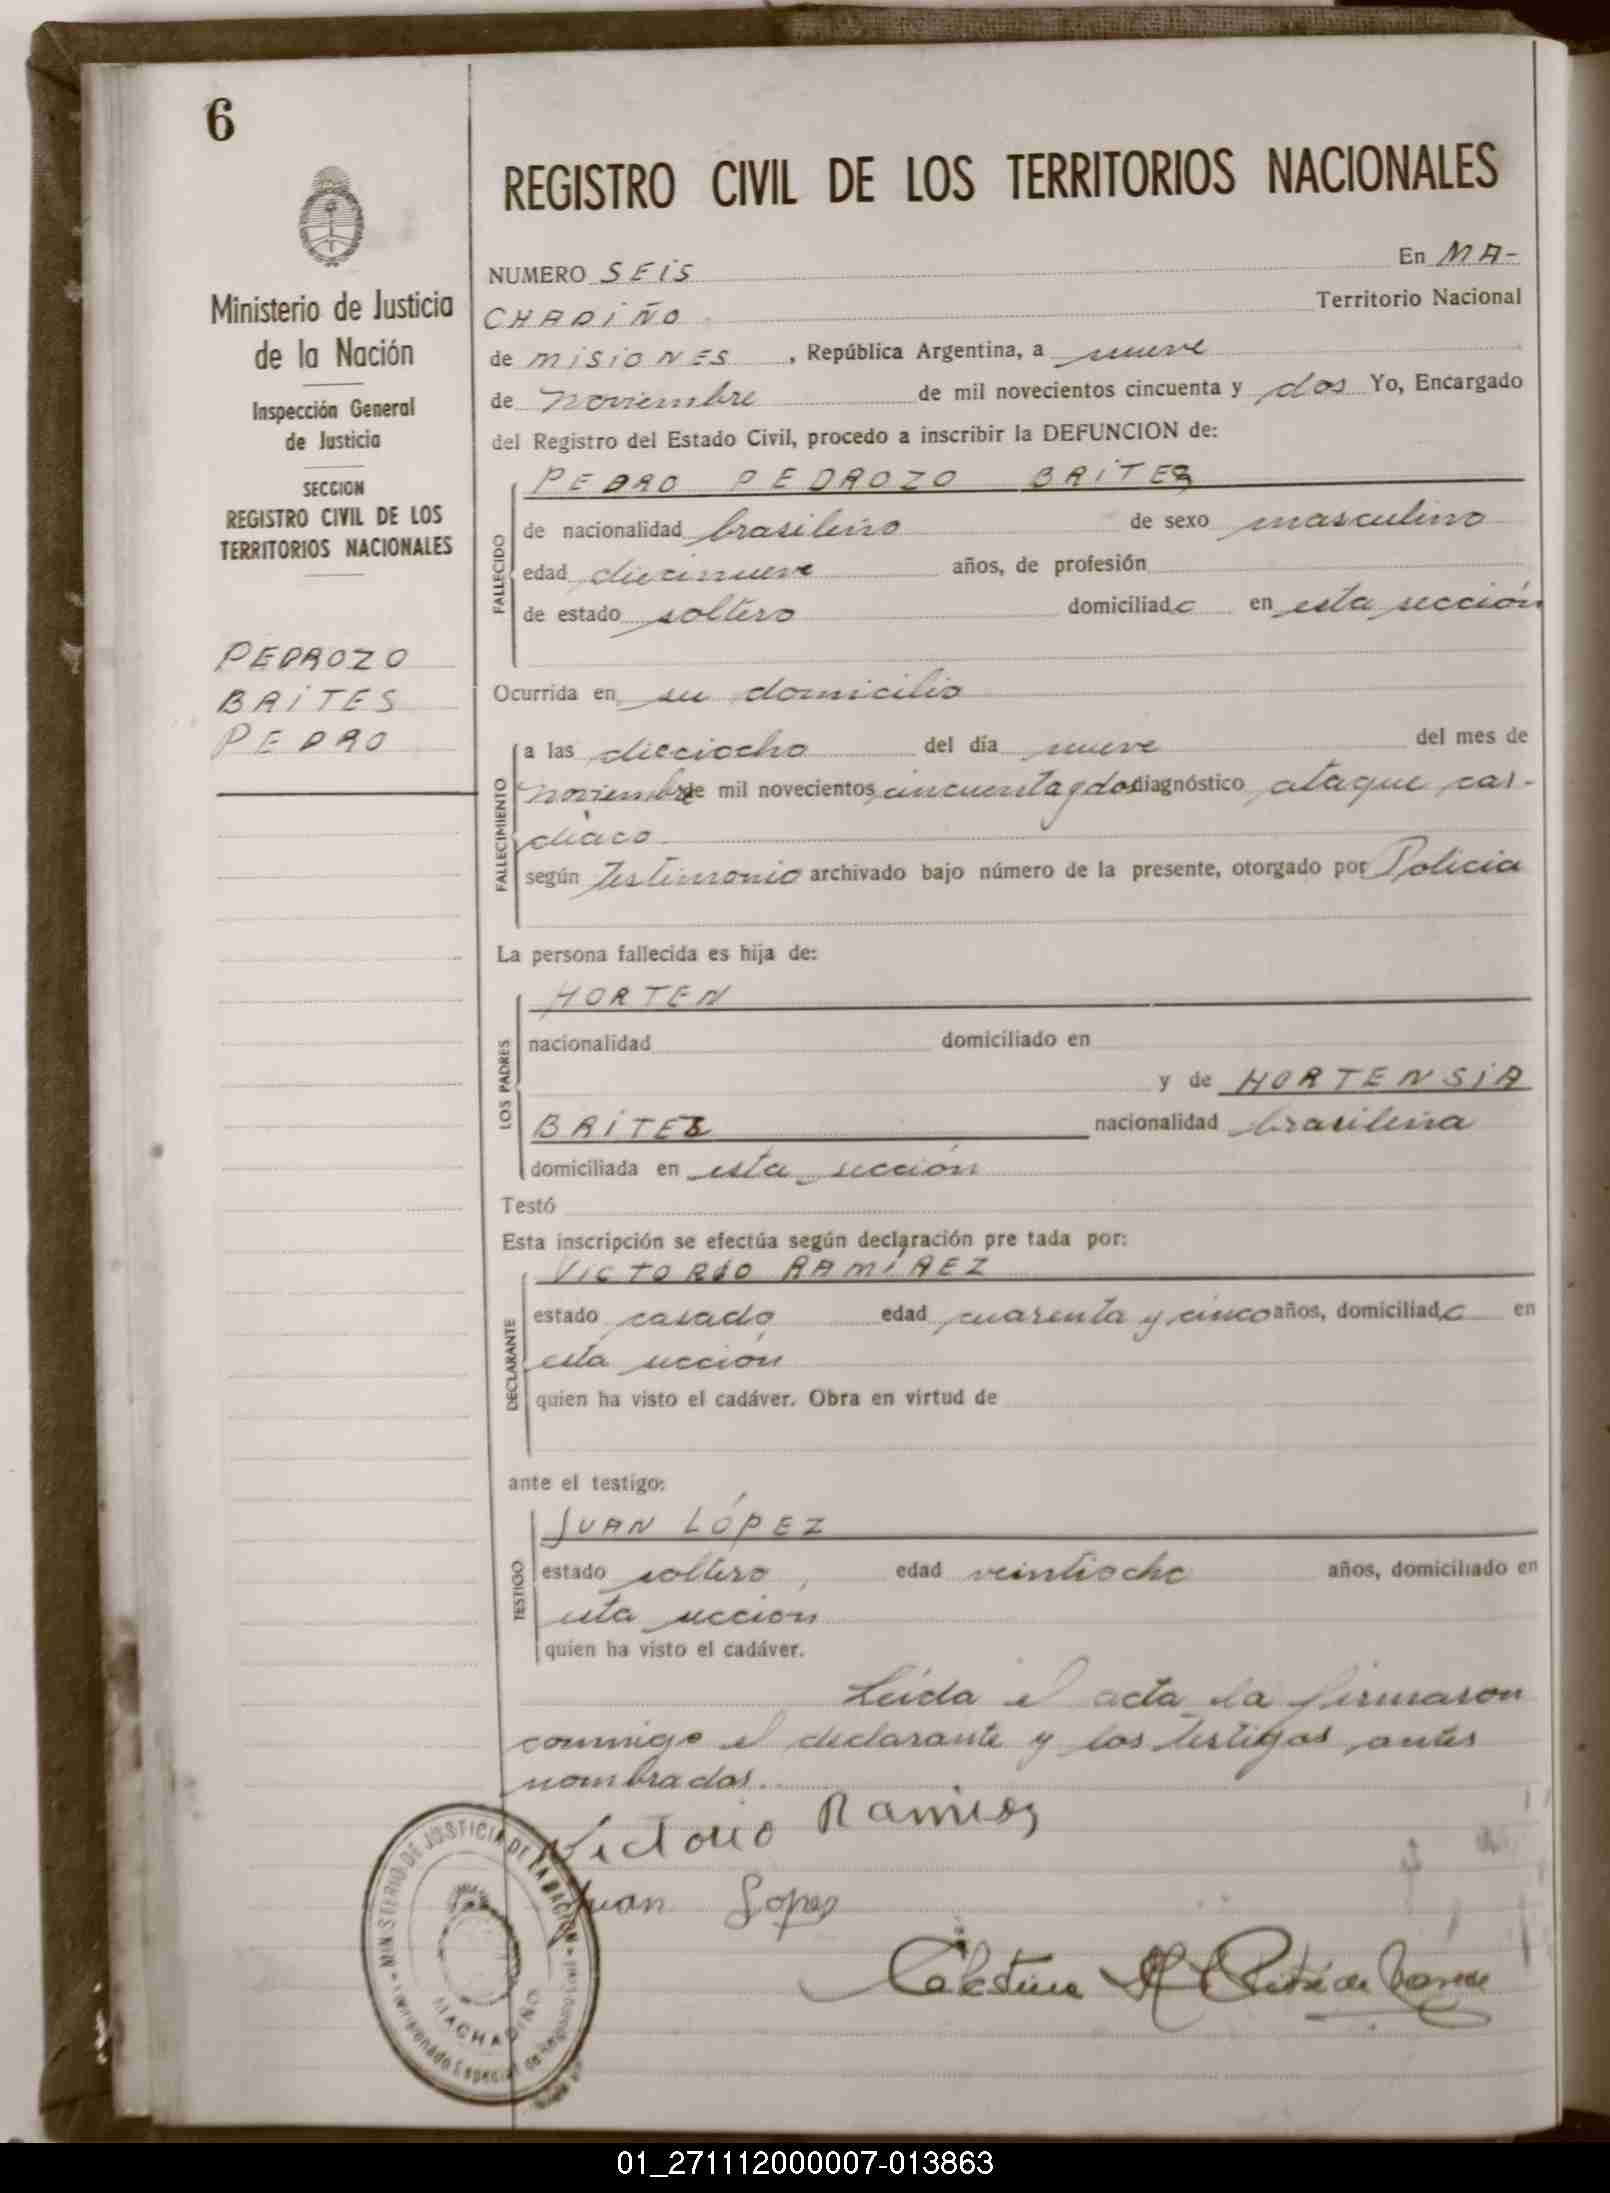 6
REGISTRO CIVIL DE LOS TERRITORIOS NACIONALES
Ministerio de Justicia
de la Nación
Inspección General
de Justicia
SECCION
REGISTRO CIVIL DE LOS
TERRITORIOS NACIONALES
PEDROZO
BRITES
PEDRO
NUMERO SEIS En MA-
CHADIÑO Territorio Nacional
de MISIONES , República Argentina, a nueve
de Noviembre de mil novecientos cincuenta y dos Yo, Encargado
del Registro del Estado Civil, procedo a inscribir la DEFUNCION de:
FALLECIDO
PEDRO PEDROZO BRITES
de nacionalidad brasileño de sexo masculino
edad diecinueve años, de profesión
de estado soltero domiciliado en esta sección
Ocurrida en su domicilio
FALLECIMIENTO
a las dieciocho del día nueve del mes de
noviembre de mil novecientos cincuenta y dos diagnóstico ataque car-
diaco
según Testimonio archivado bajo número de la presente, otorgado por Policia
La persona fallecida es hija de:
LOS PADRES
HORTEN
nacionalidad domiciliado en
y de HORTENSIA
BRITES nacionalidad brasileña
domiciliada en esta sección
Testó
Esta inscripción se efectúa según declaración pre tada por:
DECLARANTE
VICTORIO RAMÍREZ
estado casado edad cuarenta y cinco años, domiciliado en
esta sección
quien ha visto el cadáver. Obra en virtud de
ante el testigo:
TESTIGO
JUAN LÓPEZ
estado soltero, edad veintiocho años, domiciliado en
esta sección
quien ha visto el cadáver.
Leída el acta la firmaron
conmigo el declarante y los testigos antes
nombrados.
Victorio Ramires
Juan Lopes
Celestina
MINISTERIO DE JUSTICIA DE LA NACION
MACHADIÑO
01_271112000007-013863